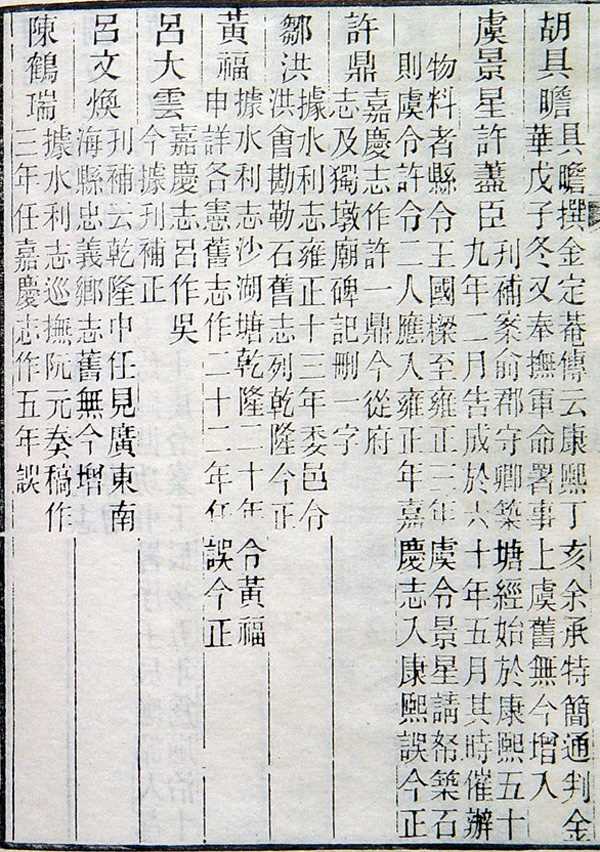 胡具瞻
具瞻撰金定菴傳云康熙丁亥余承特簡通判金
華戊子冬又奉撫軍命署事上虞舊無今增入
虞景星許藎臣
刋補案俞郡守卿築塘經始於康熙五十
九年二月告成於六十年五月其時催辦
物料者縣令王國樑至雍正三年虞令景星請帑築石
則虞令許令二人應入雍正年嘉慶志入康熙誤今正
許鼎
嘉慶志作許一鼎今從府
志及獨墩廟碑記刪一字
鄒洪
據水利志雍正十三年委邑令
洪會勘勒石舊志列乾隆今正
黃福
據水利志沙湖塘乾隆二十年令黃福
申詳各憲舊志作二十二年任誤今正
呂大雲
嘉慶志呂作吳
今據刋補正
呂文煥
刋補云乾隆中任見廣東南
海縣忠義鄉志舊無今增
陳鶴瑞
據水利志巡撫阮元奏稿作
三年任嘉慶志作五年誤